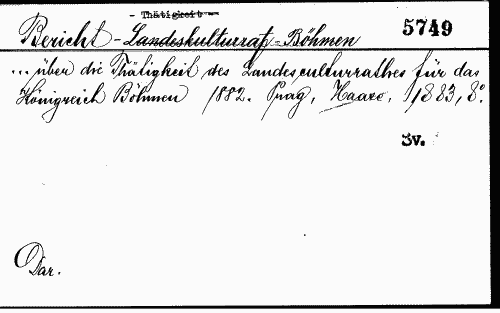 - Thätigkeit -
Bericht - Landeskulturrat - Böhmen 5749
... über die Thätigkeit des Landesculturrathes für das
Königreich Böhmen 1882. Prag, Haase, 1883, 8°.
Sv.
Dar.